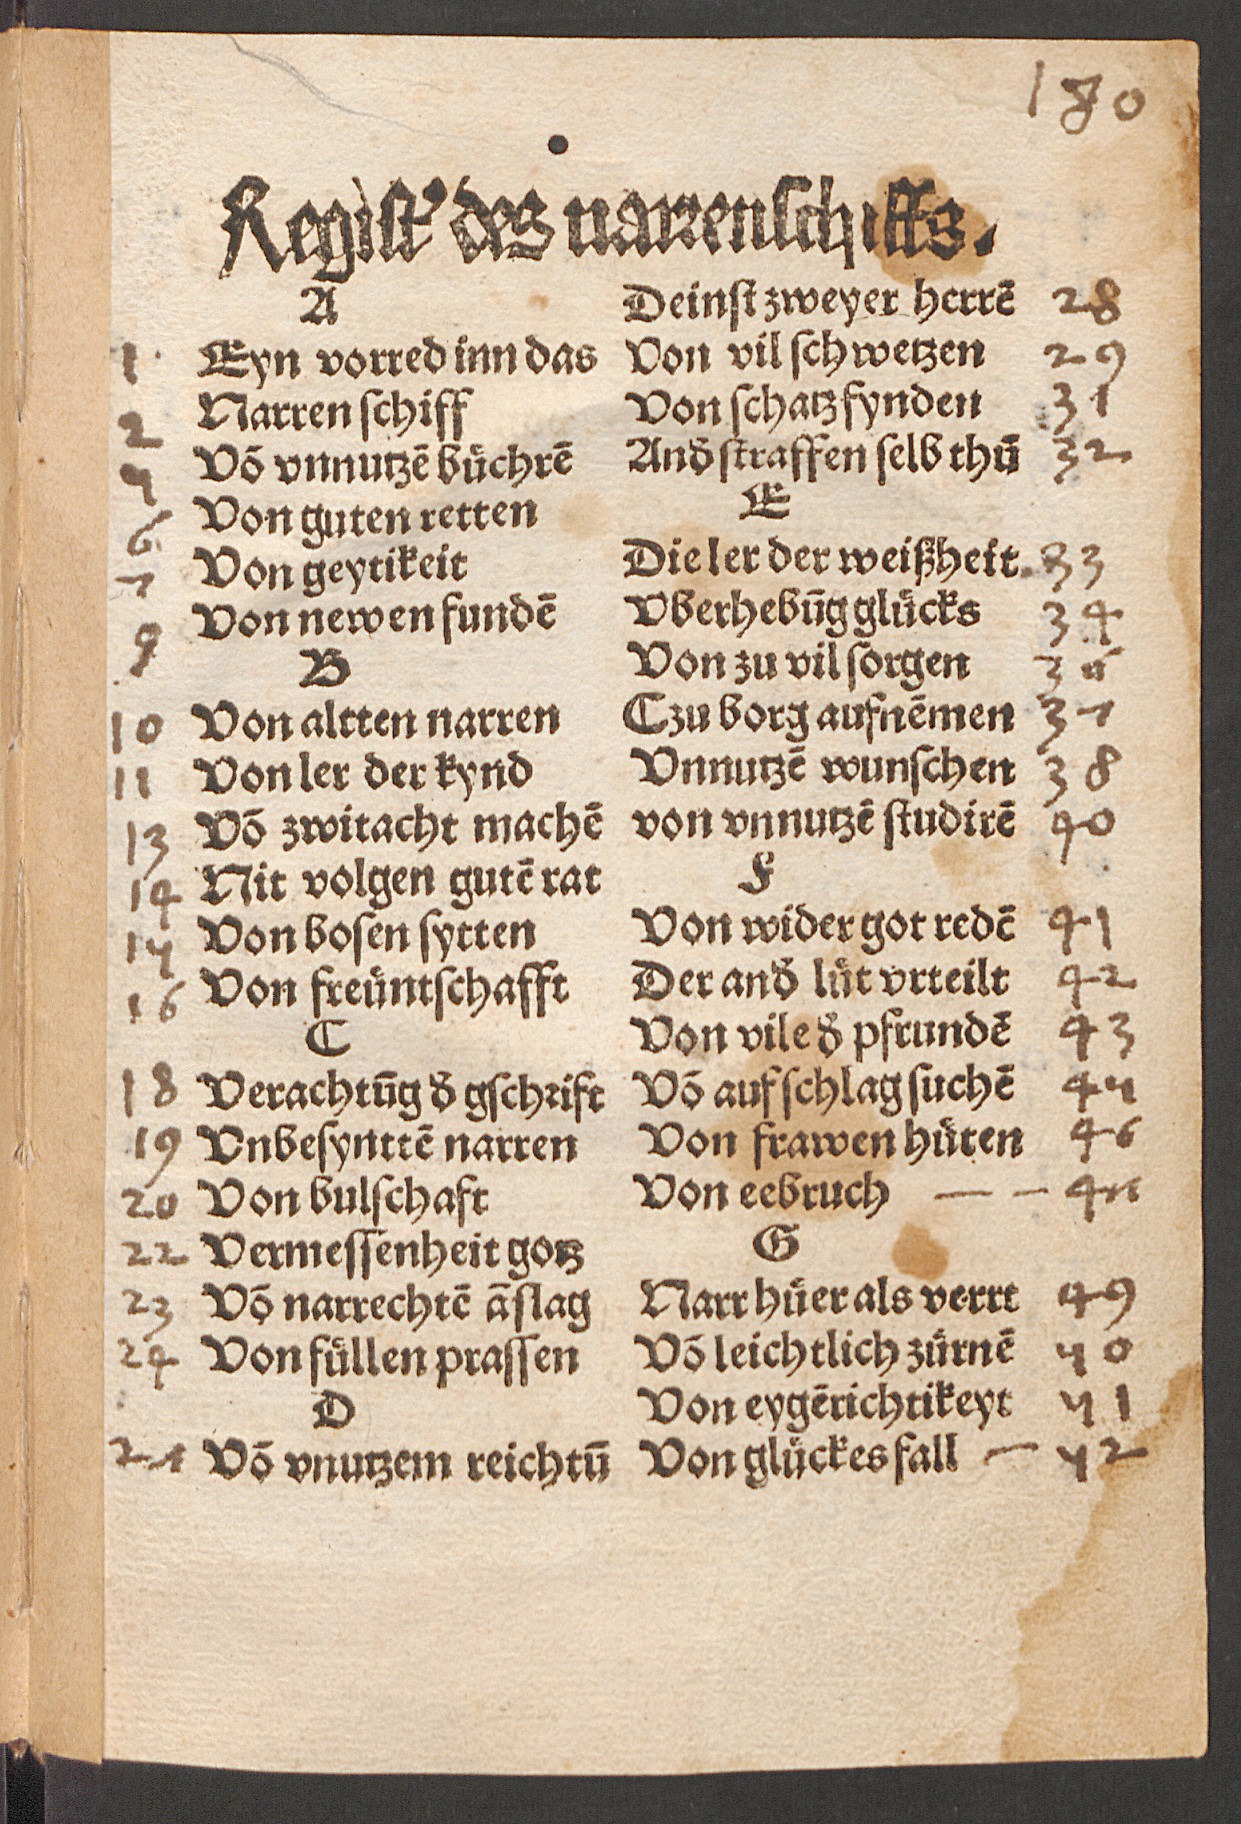 180
Regist' des narrenschiffs.
A
1 Eyn vorred inn das
2 Narren schiff
4 Vō vnnutzē bůchrē
6 Von guten retten
7 Von geytikeit
9 Von newen fundē
B
10 Von altten narren
11 Von ler der kynd
13 Vō zwitacht machē
14 Nit volgen gutē rat
15 Von bosen sytten
16 Von freůntschafft
C
18 Verachtūg đ gschrift
19 Vnbesynttē narren
20 Von bulschaft
22 Vermessenheit gotz
23 Vō narrechtē āslag
24 Von fůllen prassen
D
27 Vō vnutzem reichtū
Deinst zweyer herrē 28
Von vil schwetzen 29
Von schatz fynden 31
Anđ straffen selb thū 32
E
Die ler der weißheit. 33
Vberhebūg glůcks 34
Von zu vil sorgen 36
Czu borg aufnēmen 37
Vnnutzē wunschen 38
von vnnutzē studirē 40
F
Von wider got redē 41
Der anđ lůt vrteilt 42
Von vile đ pfrundē 43
Vō aufschlag suchē 45
Von frawen hůten 46
Von eebruch — — 47
G
Narr hůer als verrt 49
Vō leichtlich zůrnē 50
Von eygērichtikeyt 51
Von glůckes fall — 52